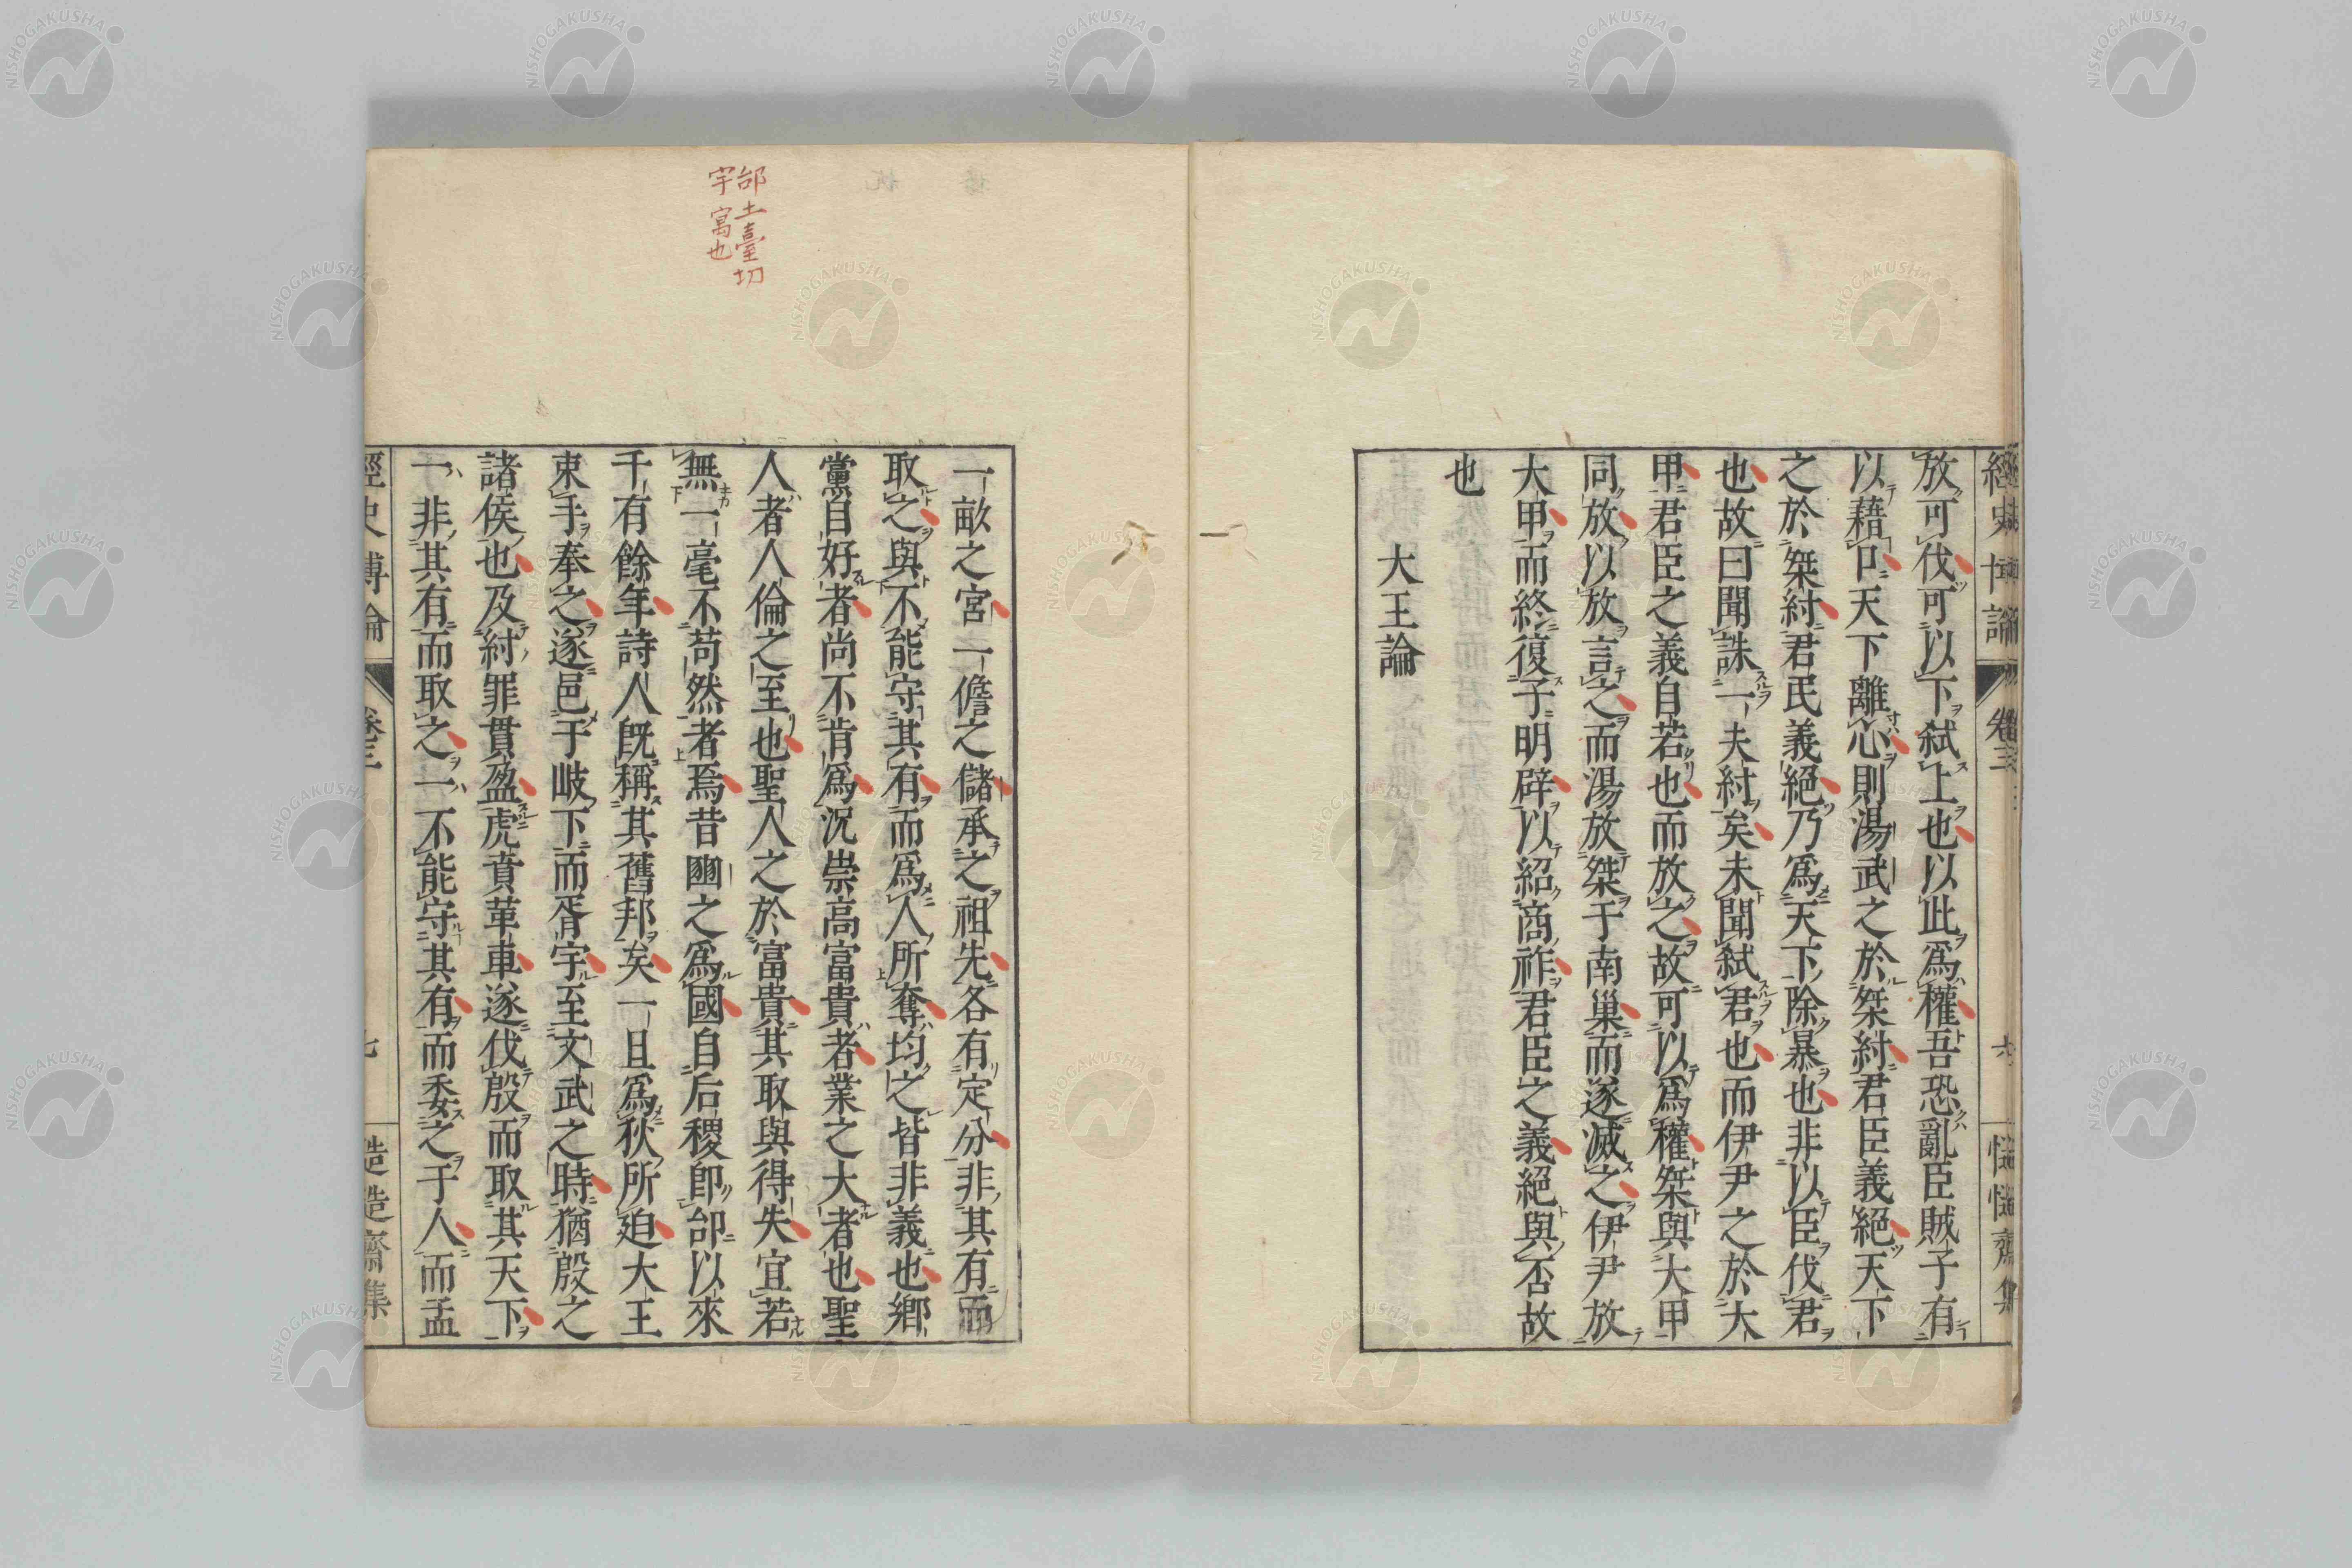 經史博論
卷三
六
慥慥齋集
放可伐可以下弑上也以此爲權吾恐亂臣賊子有
以藉口天下離心則湯武之於桀紂君臣義絕天下
之於桀紂君民義絕乃爲天下除暴也非以臣伐君
也故曰聞誅一夫紂矣未聞弑君也而伊尹之於大
甲君臣之義自若也而放之故可以爲權桀與大甲
同放以放言之而湯放桀于南巢而遂滅之伊尹放
大甲而終復子明辟以紹商祚君臣之義絕與否故
也
大王論
邰土臺切
宇寓也
一畝之宮一儋之儲承之祖先各有定分非其有而
取之與不能守其有而爲人所奪均之皆非義也鄕
黨自好者尚不肯爲況崇高富貴者業之大者也聖
人者人倫之至也聖人之於富貴其取與得失宜若
無一毫不苟然者焉昔豳之爲國自后稷卽邰以來
千有餘年詩人旣稱其舊邦矣一旦爲狄所廹大王
束手奉之遂邑于岐下而胥宇至文武之時猶殷之
諸侯也及紂罪貫盈虎賁革車遂伐殷而取其天下
一非其有而取之一不能守其有而委之于人而孟
經史博論
卷三
七
慥慥齋集
NISHOGAKUSHA